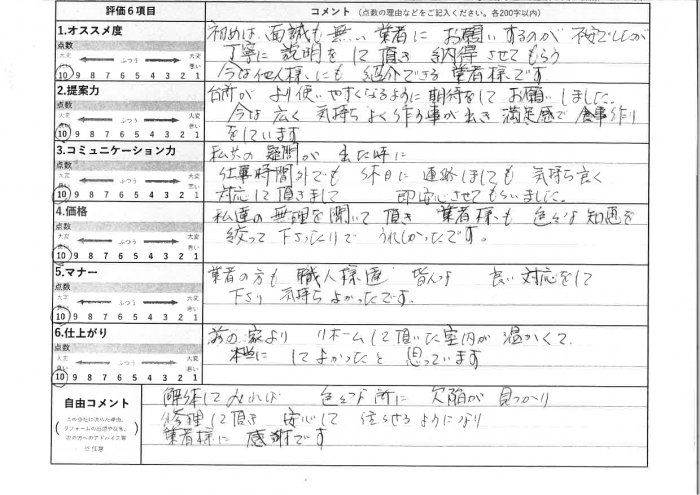 評価6項目
コメント（点数の理由などをご記入ください。各200字以内）
1.オススメ度
点数
大変良い ふつう 大変悪い
10 9 8 7 6 5 4 3 2 1
初めは、面識も無い業者にお願いするのが不安でしたが
丁寧に説明をして頂き納得させてもらう
今は他人様にも紹介できる業者様です
2.提案力
点数
大変良い ふつう 大変悪い
10 9 8 7 6 5 4 3 2 1
台所がより使いやすくなるように期待をしてお願いしました。
今は広く気持ちよく作る事が出き満足感で食事作り
をしています
3.コミュニケーション力
点数
大変良い ふつう 大変悪い
10 9 8 7 6 5 4 3 2 1
私共の疑問が出た時に
仕事時間外でも休日に連絡しましても気持ち良く
対応して頂きまして 即安心させてもらいました。
4.価格
点数
大変良い ふつう 大変悪い
10 9 8 7 6 5 4 3 2 1
私達の無理を聞いて頂き業者様も色々な知恵を
絞って下さったりでうれしかったです。
5.マナー
点数
大変良い ふつう 大変悪い
10 9 8 7 6 5 4 3 2 1
業者の方も職人様達皆んな良い対応をして
下さり気持ちよかったです。
6.仕上がり
点数
大変良い ふつう 大変悪い
10 9 8 7 6 5 4 3 2 1
前の家よりリホームして頂いた室内が温かくて
本当にしてよかったと思っています
自由コメント
この会社に決めた理由、
リフォームの感想や改善、
次の方へのアドバイス等
※任意
解体してみれば色々な所に欠陥が見つかり
修理して頂き安心して住させるようになり
業者様に感謝です